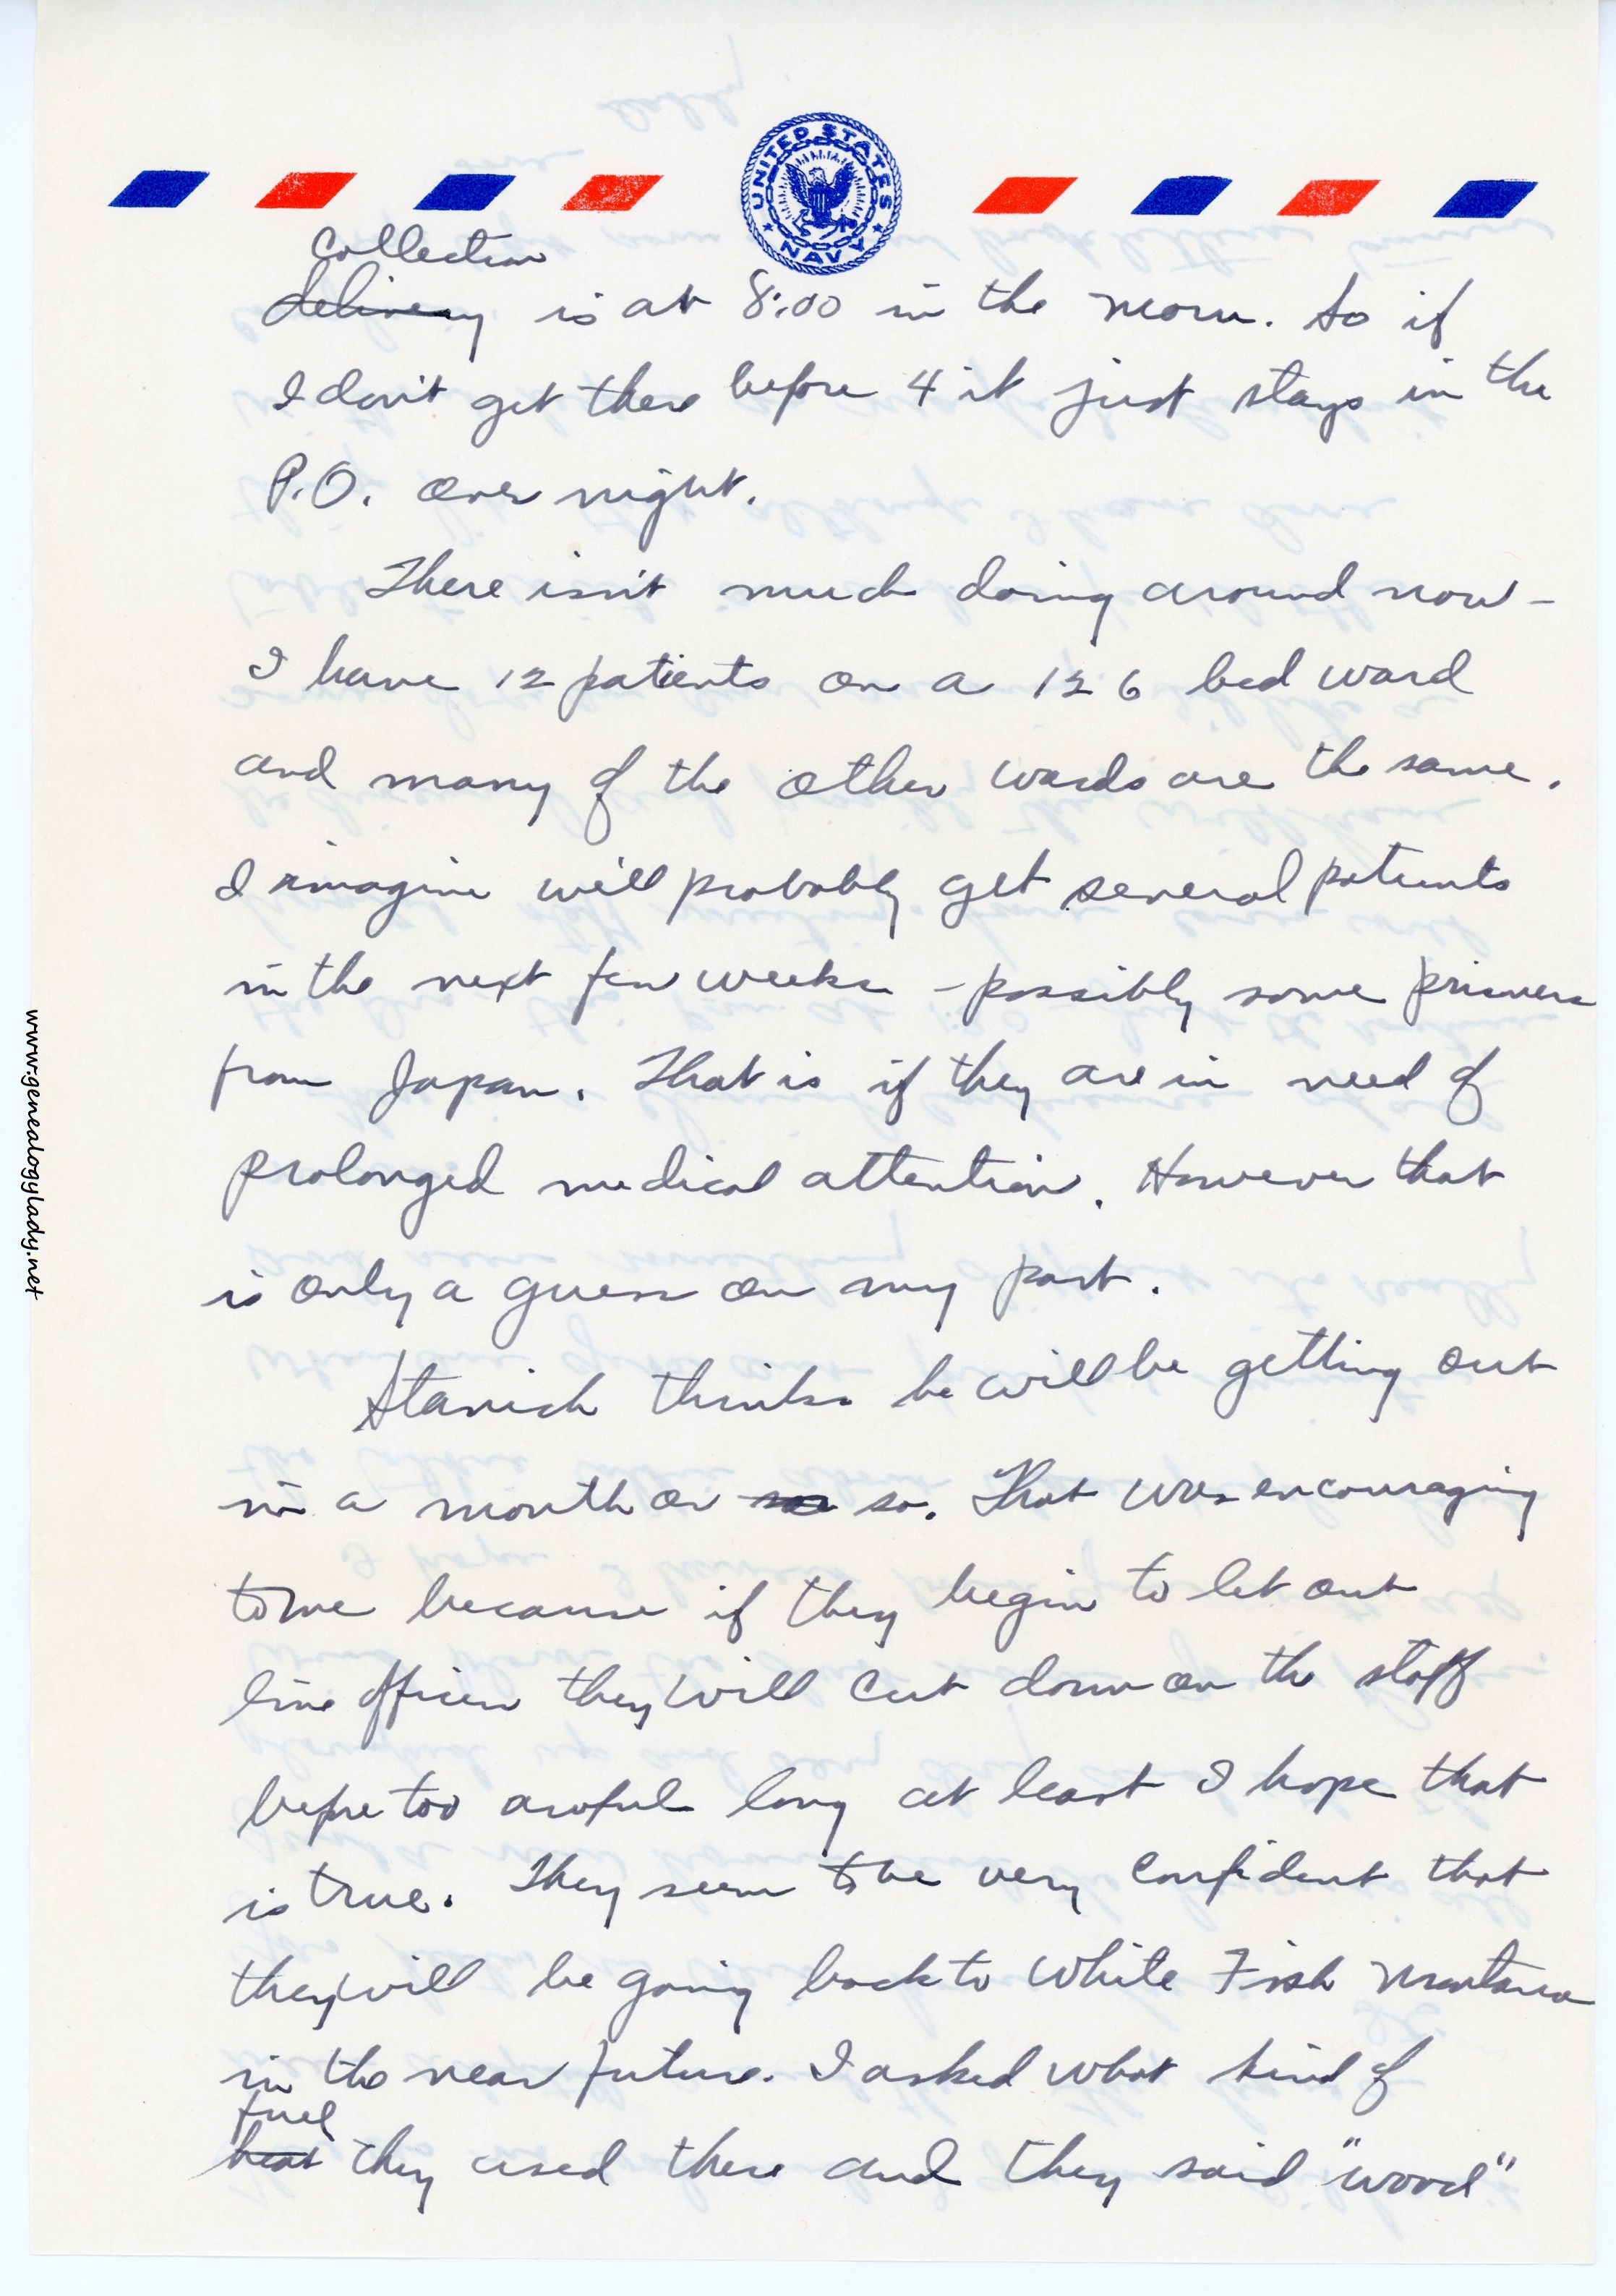 UNITED STATES NAVY
collection
delivery is at 8:00 in the morn. So if
I don't get there before 4 it just stays in the
P.O. over night.
There isn't much doing around now –
I have 12 patients on a 126 bed ward
and many of the other wards are the same.
I imagine we'll probably get several patients
in the next few weeks – possibly some prisners
from Japan. That is if they are in need of
prolonged medical attention. However that
is only a guess on my part.
Stanich thinks he will be getting out
in a month or so. That was encouraging
to me because if they begin to let out
line officers they will cut down on the staff
before too awful long at least I hope that
is true. They seem to be very confident that
they will be going back to White Fish Montana
in the near future. I asked what kind of
fuel
heat they used there and they said "wood"
www.genealogylady.net